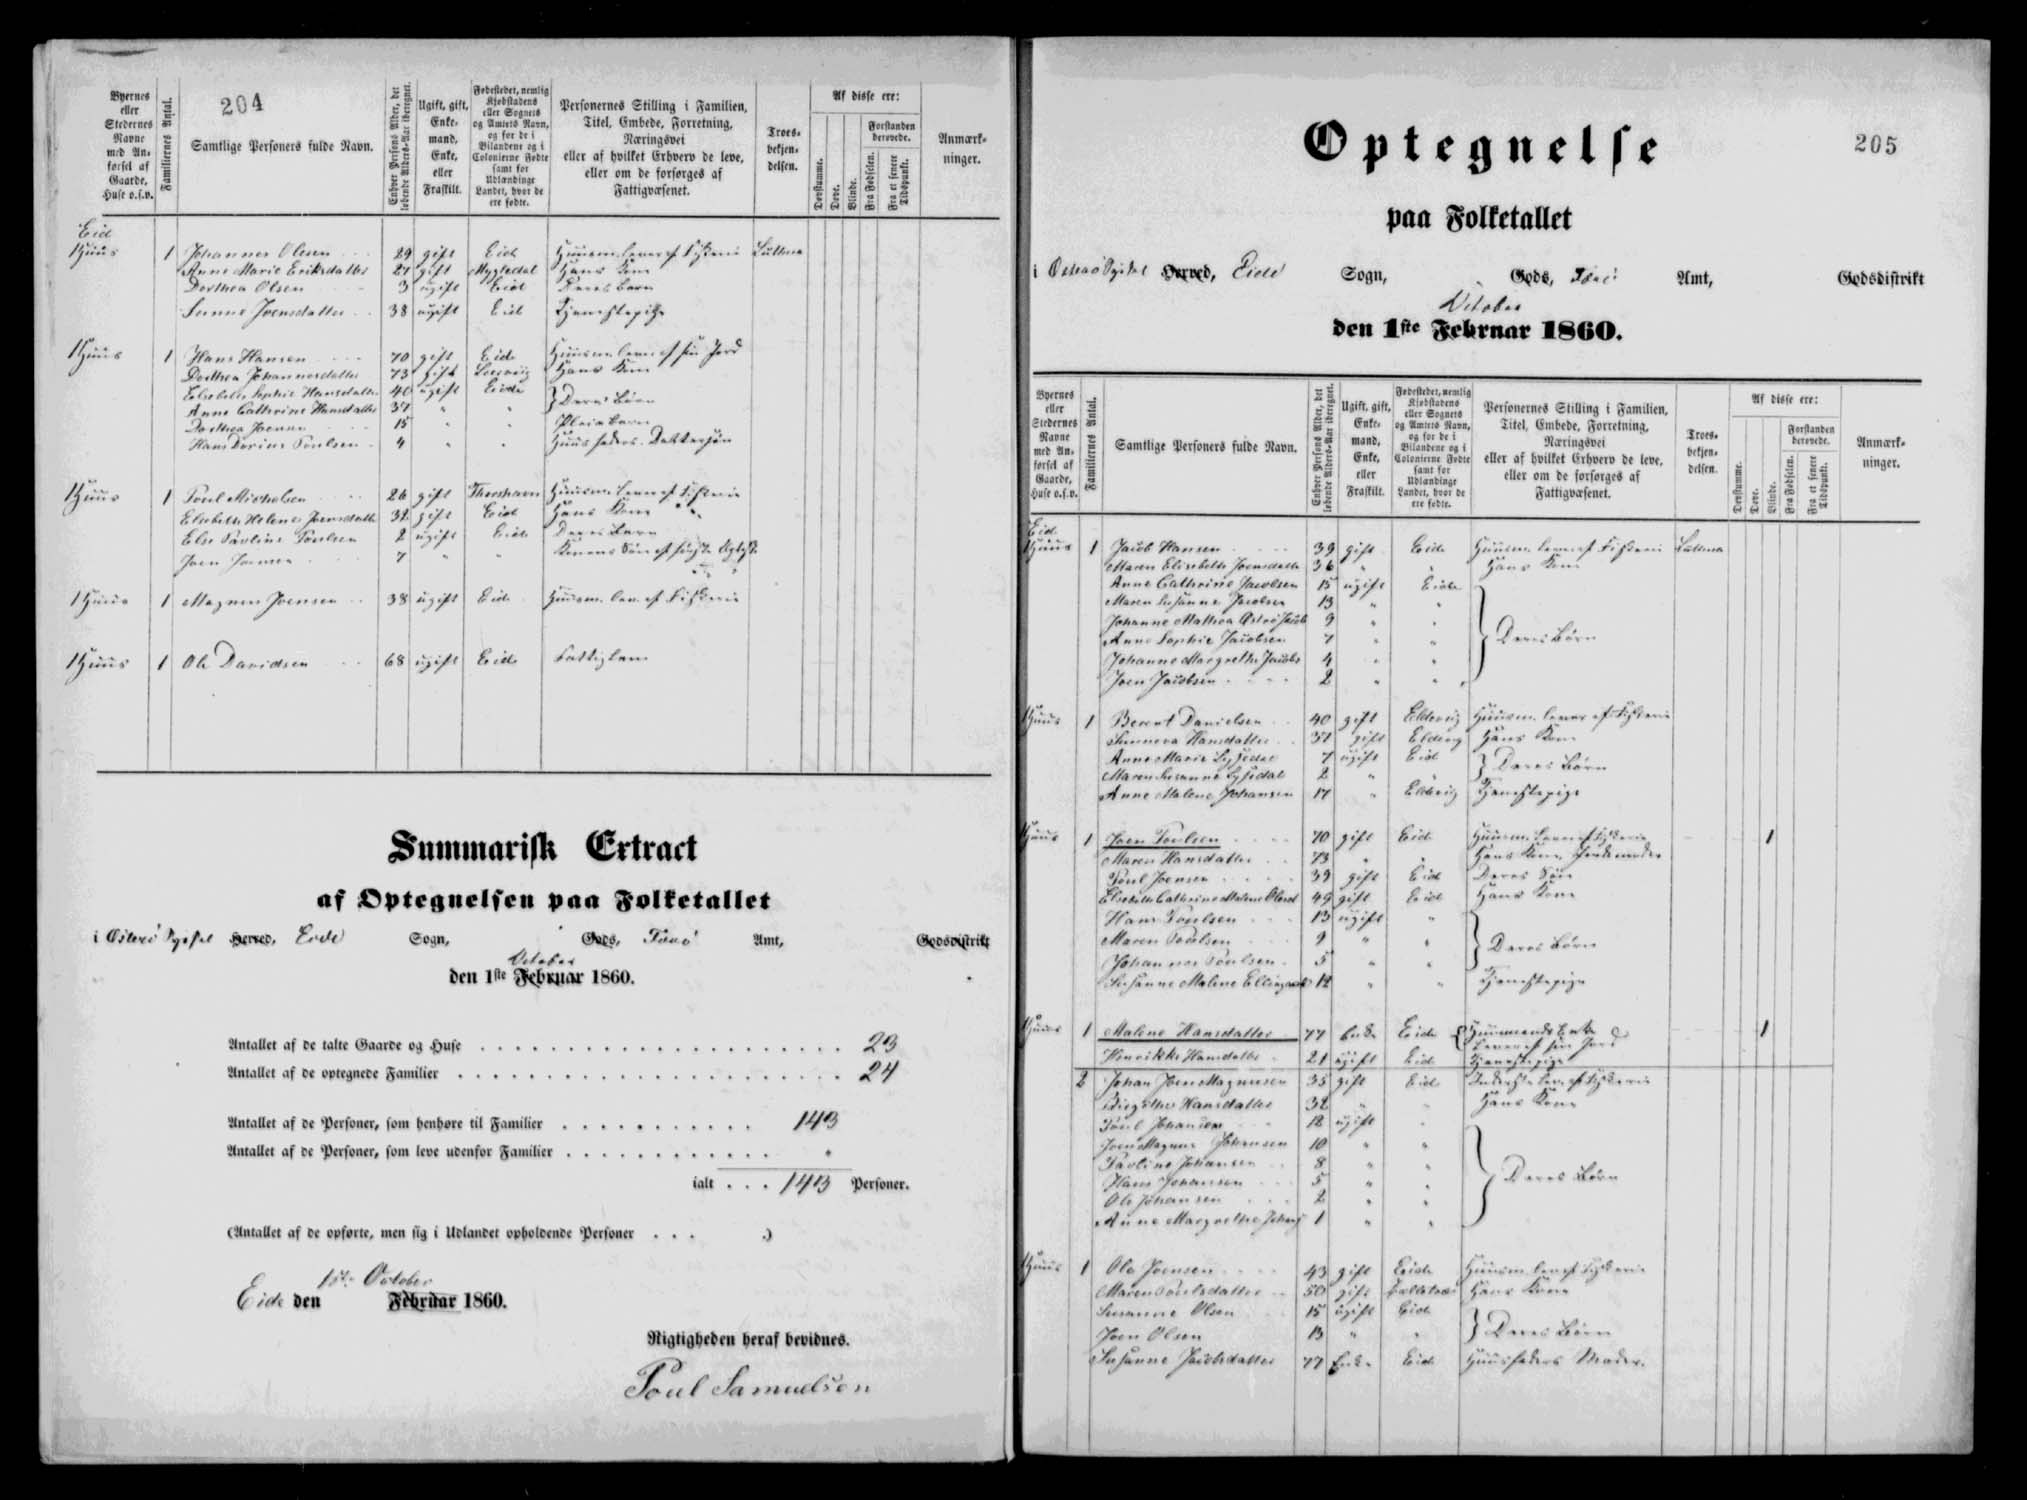 204
Byernes eller Stedernes Navne med Anførsel af Gaarde, Huse o.s.v.
Familiernes Antal.
Samtlige Personers fulde Navn.
Enhver Persons Alder, det løbende Alders-Aar iberegnet.
Ugift, gift, Enkemand, Enke, eller Fraskilt.
Fødestedet, nemlig Kjøbstadens eller Sognets og Amtets Navn, og for de i Bilandene og i Colonierne Fødte samt for Udlændinge Landet, hvor de ere fødte.
Personernes Stilling i Familien, Titel, Embede, Forretning, Næringsvei eller af hvilket Erhverv de leve, eller om de forsørges af Fattigvæsenet.
Troesbekjendelsen.
Af disse ere:
Døvstumme.
Døve.
Blinde.
Forstanden berøvede.
Fra Fødselen.
Fra et senere Tidspunkt.
Anmærkninger.
Eid
1 Huus 1 Johannes Olsen 29 gift Eid Huusm. lever af Fiskerie Luthersk
Anne Marie Eriksdatter 27 gift Mygledal Hans Kone
Dorthea Olsen 3 ugift Eid Deres Barn
Sunne Joensdatter 38 ugift Eid Tjenestepige
1 Huus 1 Hans Hansen 70 gift Eide Huusm. lever af sin Jord
Dorthea Johannesdatter 73 gift Hans Kone
Elsebeth Sophie Hansdatter 40 ugift Eide } Deres Børn
Anne Cathrine Hansdatter 37 " "
Dorthea Joensen 15 " " Pleiebarn
Hans Dorius Poulsen 4 " " Huusfaders Dattersøn
1 Huus 1 Poul Michelsen 26 gift Thorshavn Huusm. lever af Fiskerie
Elsebeth Helene Joensdatter 32 gift Eid Hans Kone
Else Pauline Poulsen 2 ugift Eide Deres Barn
Joen Joensen 7 " " Konens Søn af første Ægteskab
1 Huus 1 Magnus Joensen 38 ugift Eid Huusm. lev. af Fiskerie
1 Huus 1 Ole Davidsen 68 ugift Eid Fattiglem
Summarisk Extract
af Optegnelsen paa Folketallet
i Østerø Syssel Herred, Eide Sogn, Gods, Færø Amt, Godsdistrikt
October
den 1ste Februar 1860.
Antallet af de talte Gaarde og Huse 23
Antallet af de optegnede Familier 24
Antallet af de Personer, som henhøre til Familier 143
Antallet af de Personer, som leve udenfor Familier "
ialt . . . 143 Personer.
(Antallet af de opførte, men sig i Udlandet opholdende Personer . . . .)
1ste October
Eide den Februar 1860.
Rigtigheden heraf bevidnes.
Poul Samuelsen
205
Optegnelse
paa Folketallet
i Østerø Syssel Herred, Eide Sogn, Gods, Færø Amt, Godsdistrikt
October
den 1ste Februar 1860.
Byernes eller Stedernes Navne med Anførsel af Gaarde, Huse o.s.v.
Familiernes Antal.
Samtlige Personers fulde Navn.
Enhver Persons Alder, det løbende Alders-Aar iberegnet.
Ugift, gift, Enkemand, Enke, eller Fraskilt.
Fødestedet, nemlig Kjøbstadens eller Sognets og Amtets Navn, og for de i Bilandene og i Colonierne Fødte samt for Udlændinge Landet, hvor de ere fødte.
Personernes Stilling i Familien, Titel, Embede, Forretning, Næringsvei eller af hvilket Erhverv de leve, eller om de forsørges af Fattigvæsenet.
Troesbekjendelsen.
Af disse ere:
Døvstumme.
Døve.
Blinde.
Forstanden berøvede.
Fra Fødselen.
Fra et senere Tidspunkt.
Anmærkninger.
Eid
1 Huus 1 Jacob Hansen 39 gift Eide Huusm. lever af Fiskerie Luthersk
Maren Elisebeth Joensdatter 36 " " Hans Kone
Anne Cathrine Jacobsen 15 ugift Eide
Maren Susanne Jacobsen 13 " "
Johanne Mathea Jacob 9 " "
Anne Sophie Jacobsen 7 " " } Deres Børn
Johanne Margrethe Jacobs 4 " "
Joen Jacobsen 2 " "
1 Huus 1 Berent Danielsen 40 gift Eldevig Huusm. lever af Fiskerie
Sunneva Hansdatter 37 gift Eldevig Hans Kone
Anne Marie 7 ugift Eid } Deres Børn
Maren Susanne 2 "
Anne Malene Johansen 17 " Eldevig Tjenestepige
1 Huus 1 Joen Poulsen 70 gift Eid Huusm. lever af Fiskerie 1
Maren Hansdatter 73 " " Hans Kone
Poul Joensen 39 gift Eid Deres Søn
Elsebeth Cathrine Malene 49 gift Eid Hans Kone
Hans Poulsen 13 ugift "
Maren Poulsen 9 " " } Deres Børn
Johannes Poulsen 5 " "
Susanne Malene 12 " " Tjenestepige
1 Huus 1 Malene Hansdatter 77 Enke Eide Huusmands Enke Lever af sin Jord 1
Henrikke Hansdatter 21 ugift Eid Tjenestepige
2 Johan Joen Magnusen 35 gift Eid Inderste lev. af Fiskerie
Birgithe Hansdatter 32 " " Hans Kone
Poul Johansen 12 ugift "
Joen Magnus Johansen 10 " "
Pauline Johansen 8 " "
Hans Johansen 5 " " } Deres Børn
Ole Johansen 2 " "
Anne Margrethe Johans 1 " "
1 Huus 1 Ole Joensen 43 gift Eide Huusm. lev. af Fiskerie
Maren Poulsdatter 50 gift Hans Kone
Susanne Olsen 15 ugift Eid } Deres Børn
Joen Olsen 13 " "
Susanne Jacobsdatter 77 Enke Eid Huusfaders Moder.